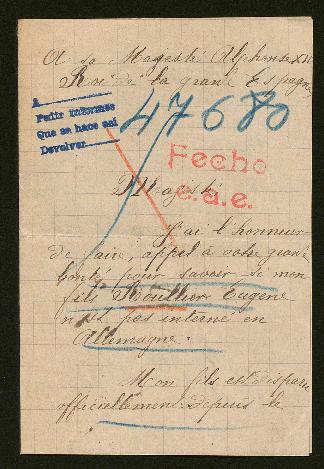 A sa Magesté Alphonse XIII
Roi de la grande Espagne
A
Pedir informes
Que se hace así
Devolver
47680
Fecho
c.d.e.
Magesté
J'ai l'honneur
de faire, appel à votre grande
bonté pour savoir si mon
fils Roullier Eugène
n'est pas interné en
Allemagne.
Mon fils est disparu
officiellement depuis le